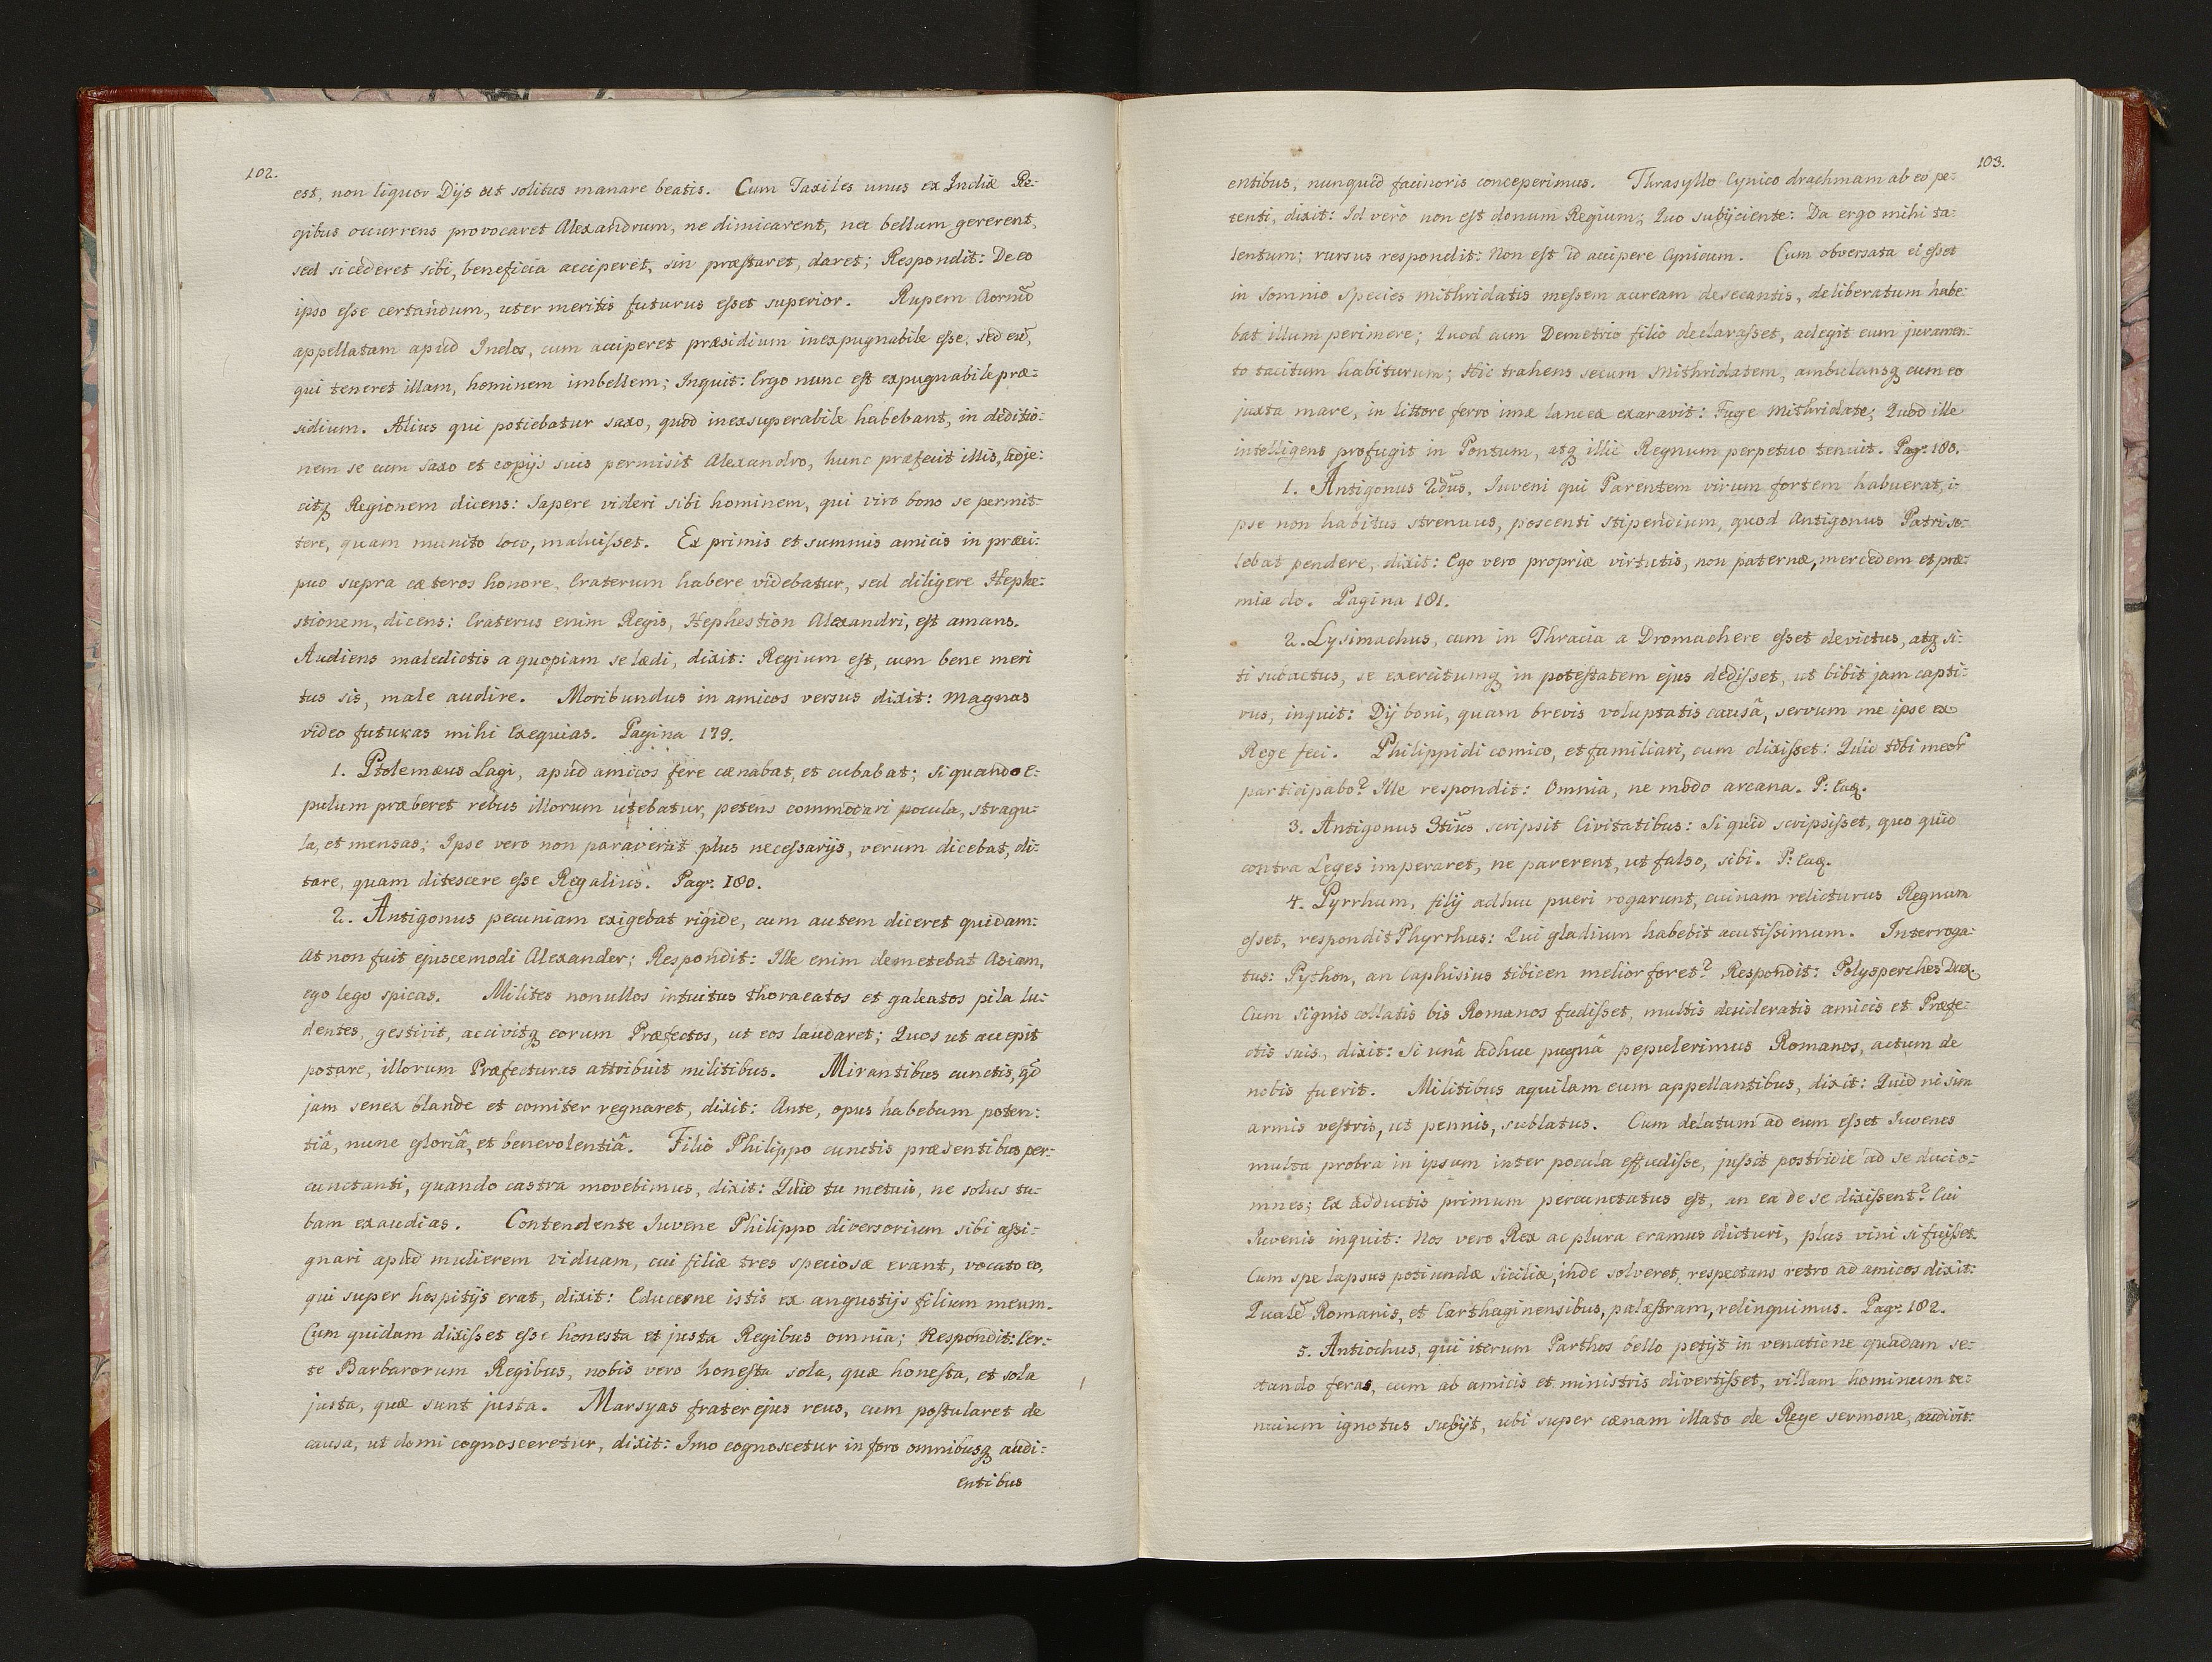 102.
est, non liquor Dijs ut solitus manare beatis. Cum Taxiles unus ex Indiæ Re-
gibus occurrens provocaret Alexandrum, ne dimicarent, nec bellum gererent,
sed si cederet sibi, beneficia acciperet, sin præstaret, daret; Respondit: De eo
ipso esse certandum, uter meritis futurus esset superior. Rupem Aornũ
appellatam apud Indos, cum acciperet præsidium inexpugnabile esse, sed eũ,
qui teneret illam, hominem imbellem; Inquit: Ergo nunc est expugnabile præ-
sidium. Alius qui potiebatur saxo, quod inexsuperabile habebant, in deditio-
nem se cum saxo et copijs suis permisit Alexandro, hunc præfecit illis, adje-
citq Regionem dicens: Sapere videri sibi hominem, qui viro bono se permit-
tere, quam munito loco, maluisset. Ex primis et summis amicis in præci-
puo supra cæteros honore, Craterum habere videbatur, sed diligere Hephe-
stionem, dicens: Craterus enim Regis, Hephestion Alexandri, est amans.
Audiens maledictis a quopiam se lædi, dixit: Regium est, cum bene meri
tus sis, male audire. Moribundus in amicos versus dixit: Magnas
video futuras mihi Exequias. Pagina 179.
1. Ptolemæus Lagi, apud amicos fere cænabat, et cubabat; si quando e-
pulum præberet rebus illorum utebatur, petens commodari pocula, stragu-
la, et mensas; Ipse vero non paraverat plus necessarijs, verum dicebat, di-
tare, quam ditescere esse Regalius. Pagr. 180.
2. Antigonus pecuniam exigebat rigide, cum autem diceret quidam:
At non fuit ejuscemodi Alexander; Respondit: Ille enim demetebat Asiam,
ego lego spicas. Milites nonullos intuitus thoracatos et galeatos pila lu-
dentes, gestivit, accivitq eorum Præfectos, ut eos laudaret; Quos ut accepit
potare, illorum Præfecturas attribuit militibus. Mirantibus cunctis, qd
jam senex blande et comiter regnaret, dixit: Ante, opus habebam poten-
tiâ, nunc gloriâ, et benevolentiâ. Filio Philippo cunctis præsentibus per-
cunctanti, quando castra movebimus, dixit: Quid tu metuis, ne solus tu-
bam exaudias. Contendente Iuvene Philippo diversorium sibi assi-
gnari apud mulierem viduam, cui filiæ tres speciosæ erant, vocato eo,
qui super hospitijs erat, dixit: Educesne istis ex angustijs filium meum.
Cum quidam dixisset esse honesta et justa Regibus omnia; Respondit: Cer-
te Barbarorum Regibus, nobis vero honesta sola, quæ honesta, et sola
justa, quæ sunt justa. Marsyas frater ejus reus, cum postularet de
causa, ut domi cognosceretur, dixit: Imo cognoscetur in foro omnibusq audi-
entibus
103.
entibus, nunquid facinoris conceperimus. Thrasyllo Cynico drachmam ab eo pe-
tenti, dixit: Id vero non est donum Regium; Quo subijciente: Da ergo mihi ta-
lentum; rursus respondit: Non est id accipere Cynicum. Cum obversata ei esset
in somnio species Mithridatis messem auream desecantis, deliberatum habe-
bat illum perimere; Quod cum Demetrio filio declarasset, adegit eum juramen-
to tacitum habiturum; Hic trahens secum Mithridatem, ambulansq cum eo
juxta mare, in littore ferro imæ lanceæ exaravit: Fuge Mithridate; Quod ille
intelligens profugit in Pontum, atq illic Regnum perpetuo tenuit. Pagr. 180.
1. Antigonus 2dũs. Iuveni qui Parentem virum fortem habuerat, i-
pse non habitus strenuus, poscenti stipendium, quod Antigonus Patri so-
lebat pendere, dixit: Ego vero propriæ virtutis, non paternæ, mercedem et præ-
mia do. Pagina 181.
2. Lysimachus, cum in Thracia a Dromachere esset devictus, atq si-
ti subactus, se exercitumq in potestatem ejus dedisset, ut bibit jam capti-
vus, inquit: Dij boni, quam brevis voluptatis causâ, servum me ipse ex
Rege feci. Philippidi comico, et familiari, cum dixisset: Quid tibi meor
participabo? Ille respondit: Omnia, ne modo arcana. P: Eaq.
3. Antigonus 3tiũs scripsit Civitatibus: Si quid scripsisset, quo quid
contra Leges imperaret, ne parerent, ut falso, sibi. P: Eaq.
4. Pyrrhum, filij adhuc pueri rogarunt, cuinam relicturus Regnum
esset, respondit Phyrrhus: Qui gladium habebit acutissimum. Interroga-
tus: Python, an Caphisius tibicen melior foret? Respondit: Polysperches Dux.
Cum signis collatis bis Romanos fudisset, multis desideratis amicis et Præfe-
ctis suis, dixit: Si unâ adhuc pugnâ pepulerimus Romanos, actum de
nobis fuerit. Militibus aquilam eum appellantibus, dixit: Quid ni sim
armis vestris, ut pennis, sublatus. Cum delatum ad eum esset Iuvenes
multa probra in ipsum inter pocula effudisse, jussit postridie ad se duci o-
mnes; Ex adductis primum percunctatus est, an ea de se dixissent? Cui
Iuvenis inquit: Nos vero Rex ac plura eramus dicturi, plus vini si fuisset.
Cum spe lapsus potiundæ Siciliæ, inde solveret, respectans retro ad amicos dixit:
Qualẽ Romanis, et Carthaginensibus, palæstram, relinquimus. Pagr. 182.
5. Antiochus, qui iterum Parthos bello petijt in venatione quadam se-
ctando feras, cum ab amicis et ministris divertisset, villam hominum te-
nuium ignotus subijt, ubi super cænam illato de Rege sermone, audivit: